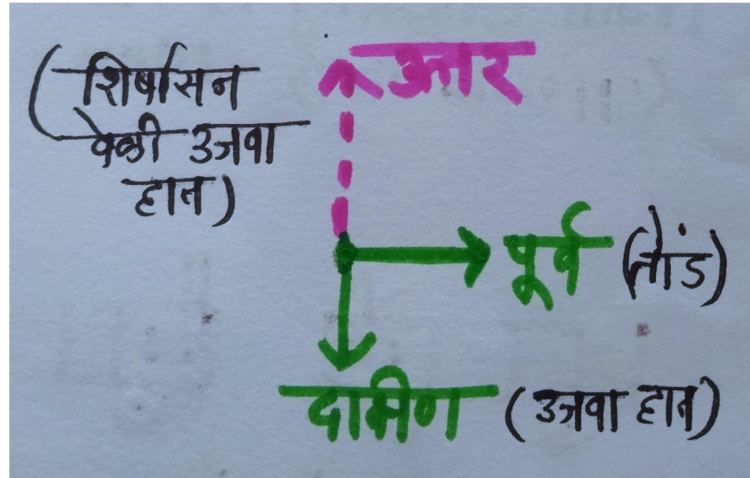 (शिर्षासन
वेळी उजवा
हात)
उत्तर
पूर्व (तोंड)
दक्षिण (उजवा हात)